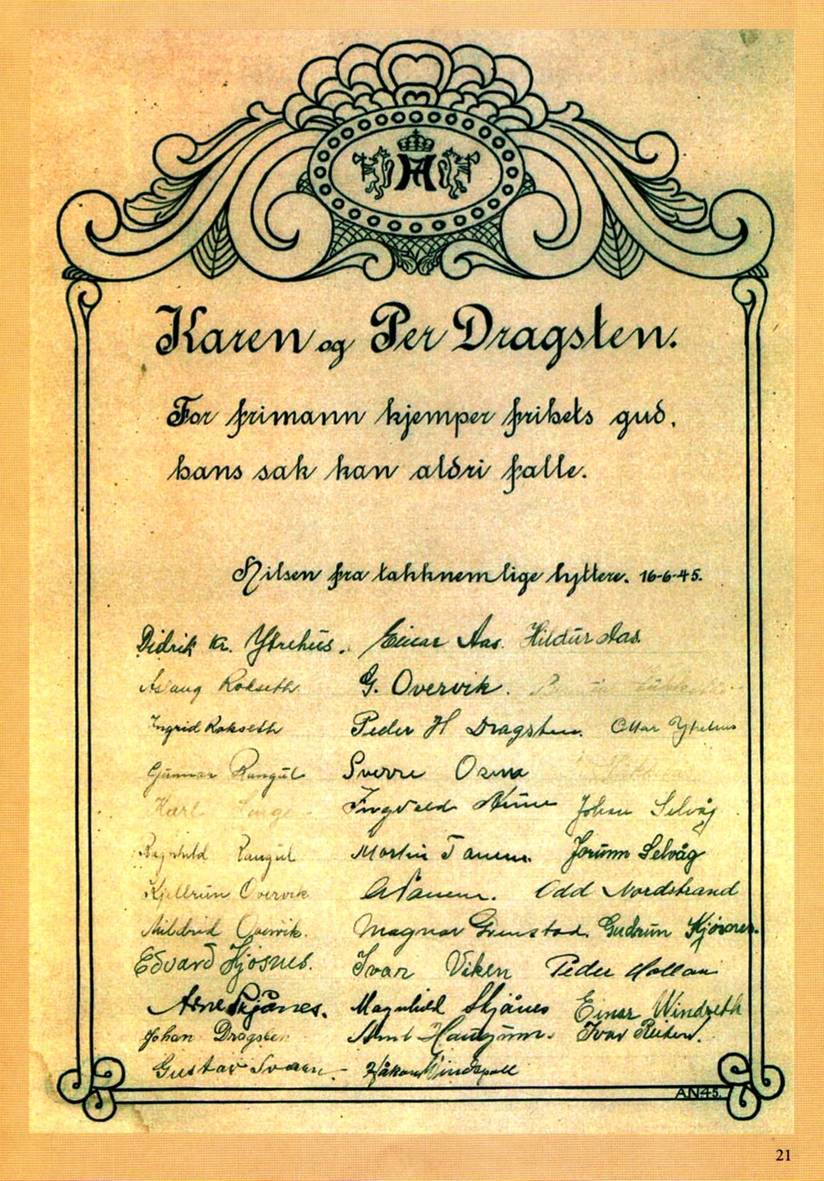 Karen og Per Dragsten.
For frimann kjemper frihets gud,
hans sak kan aldri falle.
Hilsen fra takknemlige lyttere. 16-6-45.
Didrik Kr. Ytrehus. Einar Aas. Hildur Aas
Aslaug Rokseth G. Overvik.
Ingrid Rokseth Peder H Dragsten. Ottar Ytrehus
Gunnar Rangul Sverre
Karl Ingvald Johan Selvåg
Ragnhild Rangul Martin Tanem. Jorunn Selvåg
Kjellrun Overvik Tanem. Odd Nordstrand
Mildrid Overvik. Magnar Grenstad. Gudrun
Edvard Kjøsnes. Ivar Viken Peder
Arne Skjånes. Magnhild Skjånes Einar Windseth
Johan Dragsten Arnt Ivar Reiten.
Gustav Håkon
AN45.
21